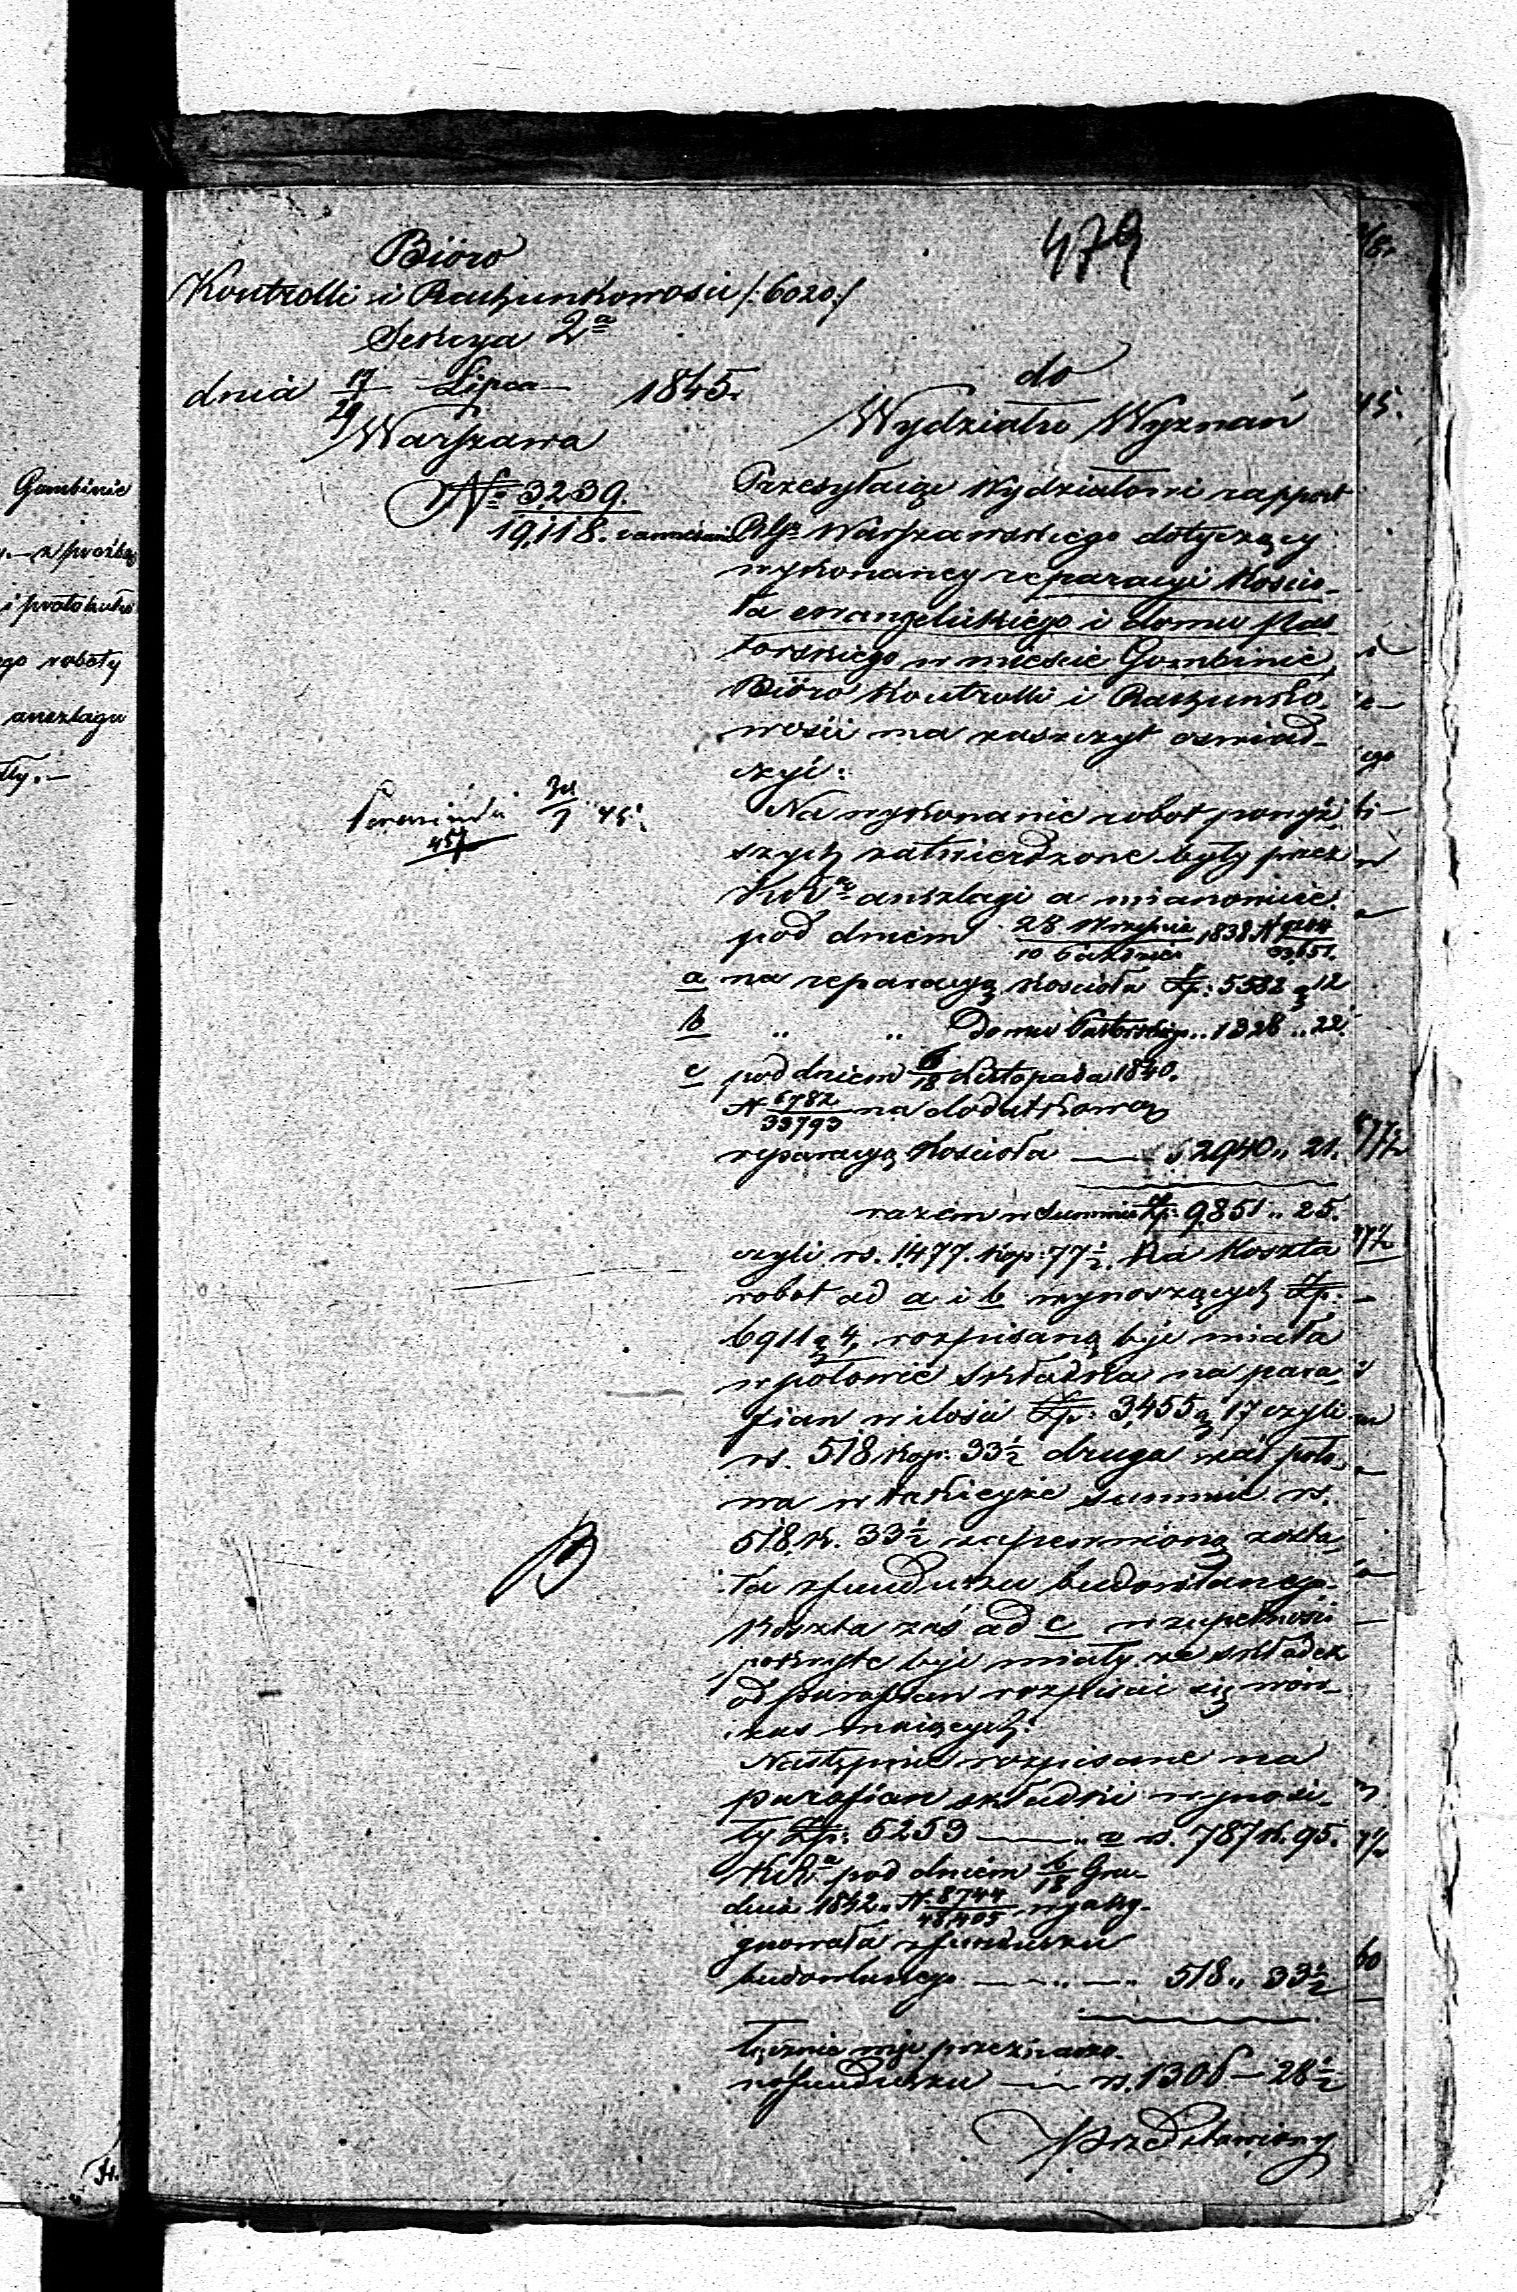 479
Bióro
Kontrolli i Rachunkowości /:6020:/
Sekcya 2ª
dnia 17/29 Lipca 1845.
Warszawa
No 3239.
19,118.
do
Wydziału Wyznań
Przesyłaiąc Wydziałowi rapport
Rzgu Warszawskiego dotyczący
wykonaney reparacyi Kościo-
ła ewangelickiego i domu Pas-
torskiego w mieście Gombinie,
Bióro Kontrolli i Rachunko-
wości ma zaszczyt oświad-
czyć:
Na wykonanie robot powyż-
szych zatwierdzone były przez
anszlagi a mianowicie.
pod dniem 28 Września/10 Października 1838 N
a na reparacyą kościoła Zp: 5582 g 12
b „ „ Domu Pastorskiego „ 1328 „ 22.
c pod dniem 6/18 Listopada 1840.
N 6782/33793 na dodatkową
reparacyą Kościoła — 2940 „ 21.
razem w Summie Zp: 9,851 „ 25.
czyli rs. 1,477. kop: 77½. Na koszta
robot ad a i b wynoszących Zp:
6911 g 4, rozpisaną być miała
w połowie składka na para-
fian w ilości Zp: 3,455 g 17 czyli
rs. 518 kop: 33½ druga zaś poło-
wa w takieyże summie rs.
518. k. 33½ zapewnioną zosta-
ła z funduszu budowlanego.
Koszta zaś ad c w zupełności
pokryte być miały ze składek
od parafian rozpisać się wów-
czas maiących.
Następnie rozpisane na
parafian składki wynosi-
ły Zp: 5253 — „ a rs. 787 k. 95.
pod dniem 6/18 Gru-
dnia 1842. N. 8744/48,405 wyasy-
gnowała z funduszu
budowlanego — „ — „ 518 „ 33½
łącznie więc przeznaczo-
no funduszu — rs. 1306 — 28½
przedstawiony
Gombinie
z prośbą
i protokułu
go roboty
anszlagu